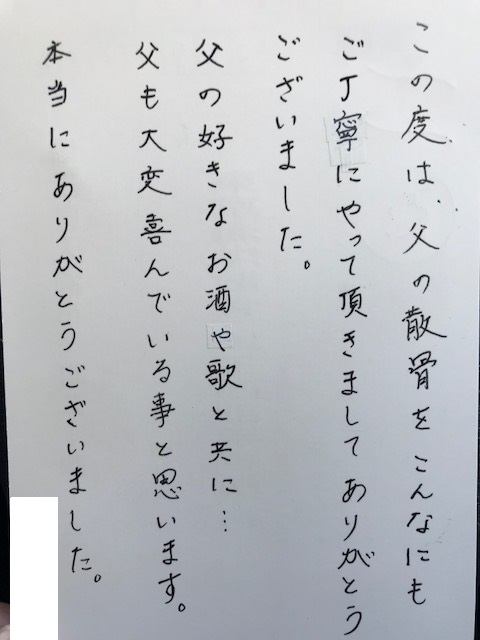 この度は、父の散骨をこんなにも
ご丁寧にやって頂きましてありがとう
ございました。
父の好きなお酒や歌と共に…
父も大変喜んでいる事と思います。
本当にありがとうございました。